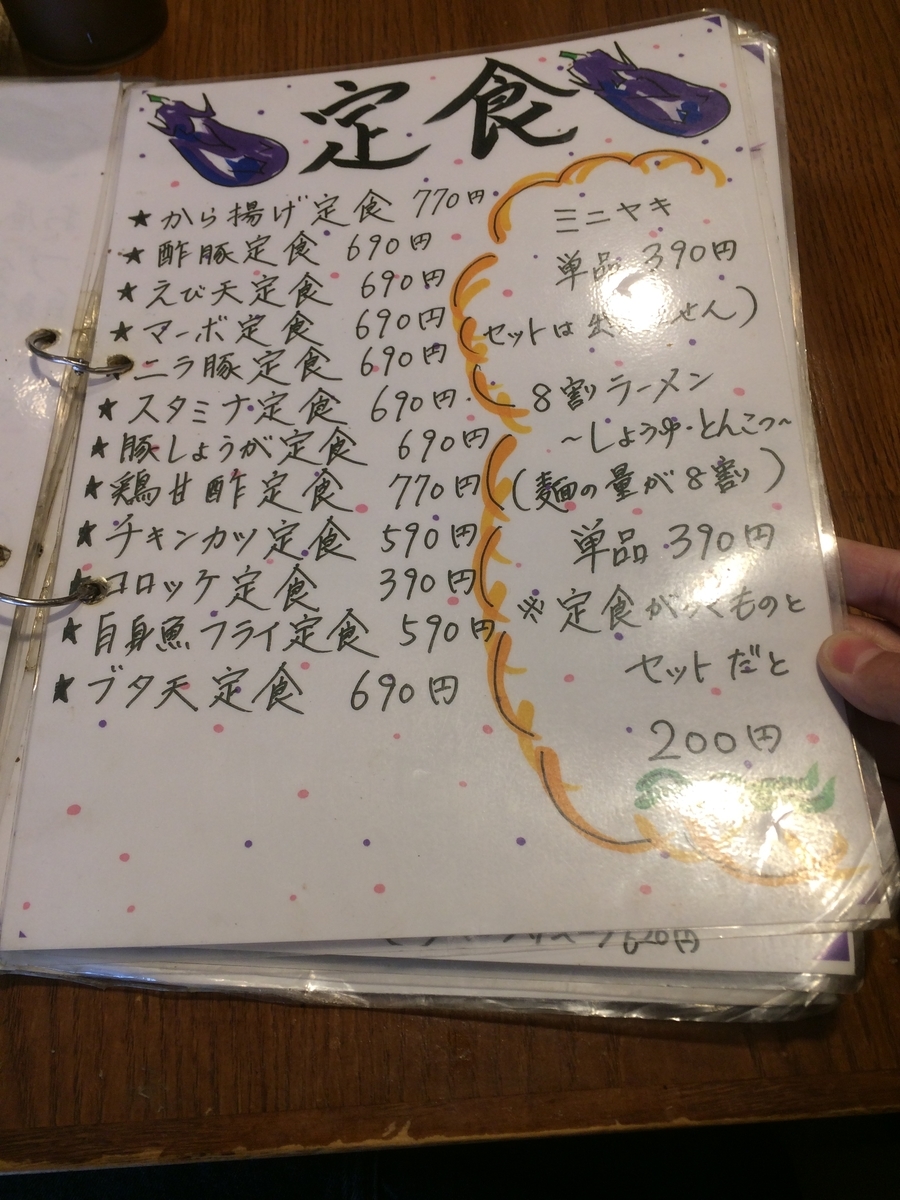 定食
★から揚げ定食 770円
★酢豚定食 690円
★えび天定食 690円
★マーボ定食 690円
★ニラ豚定食 690円
★スタミナ定食 690円
★豚しょうが定食 690円
★鶏甘酢定食 770円
★チキンカツ定食 590円
★コロッケ定食 390円
★白身魚フライ定食 590円
★ブタ天定食 690円
ミニヤキ
単品 390円
(セットは出 せん)
8割ラーメン
~しょうゆ・とんこつ~
(麺の量が8割)
単品 390円
※定食がつくものと
セットだと
200円
620円